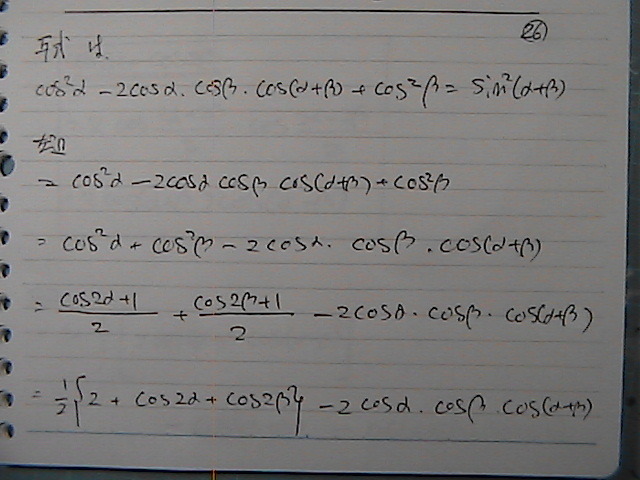 26
cos²α - 2cosα. cosβ. cos(α+β) + cos²β = sin²(α+β)
= cos²α - 2cosα cosβ cos(α+β) + cos²β
= cos²α + cos²β - 2cosα. cosβ. cos(α+β)
= (cos2α+1)/2 + (cos2β+1)/2 - 2cosα. cosβ. cos(α+β)
= 1/2 {2 + cos2α + cos2β} - 2cosα. cosβ cos(α+β)